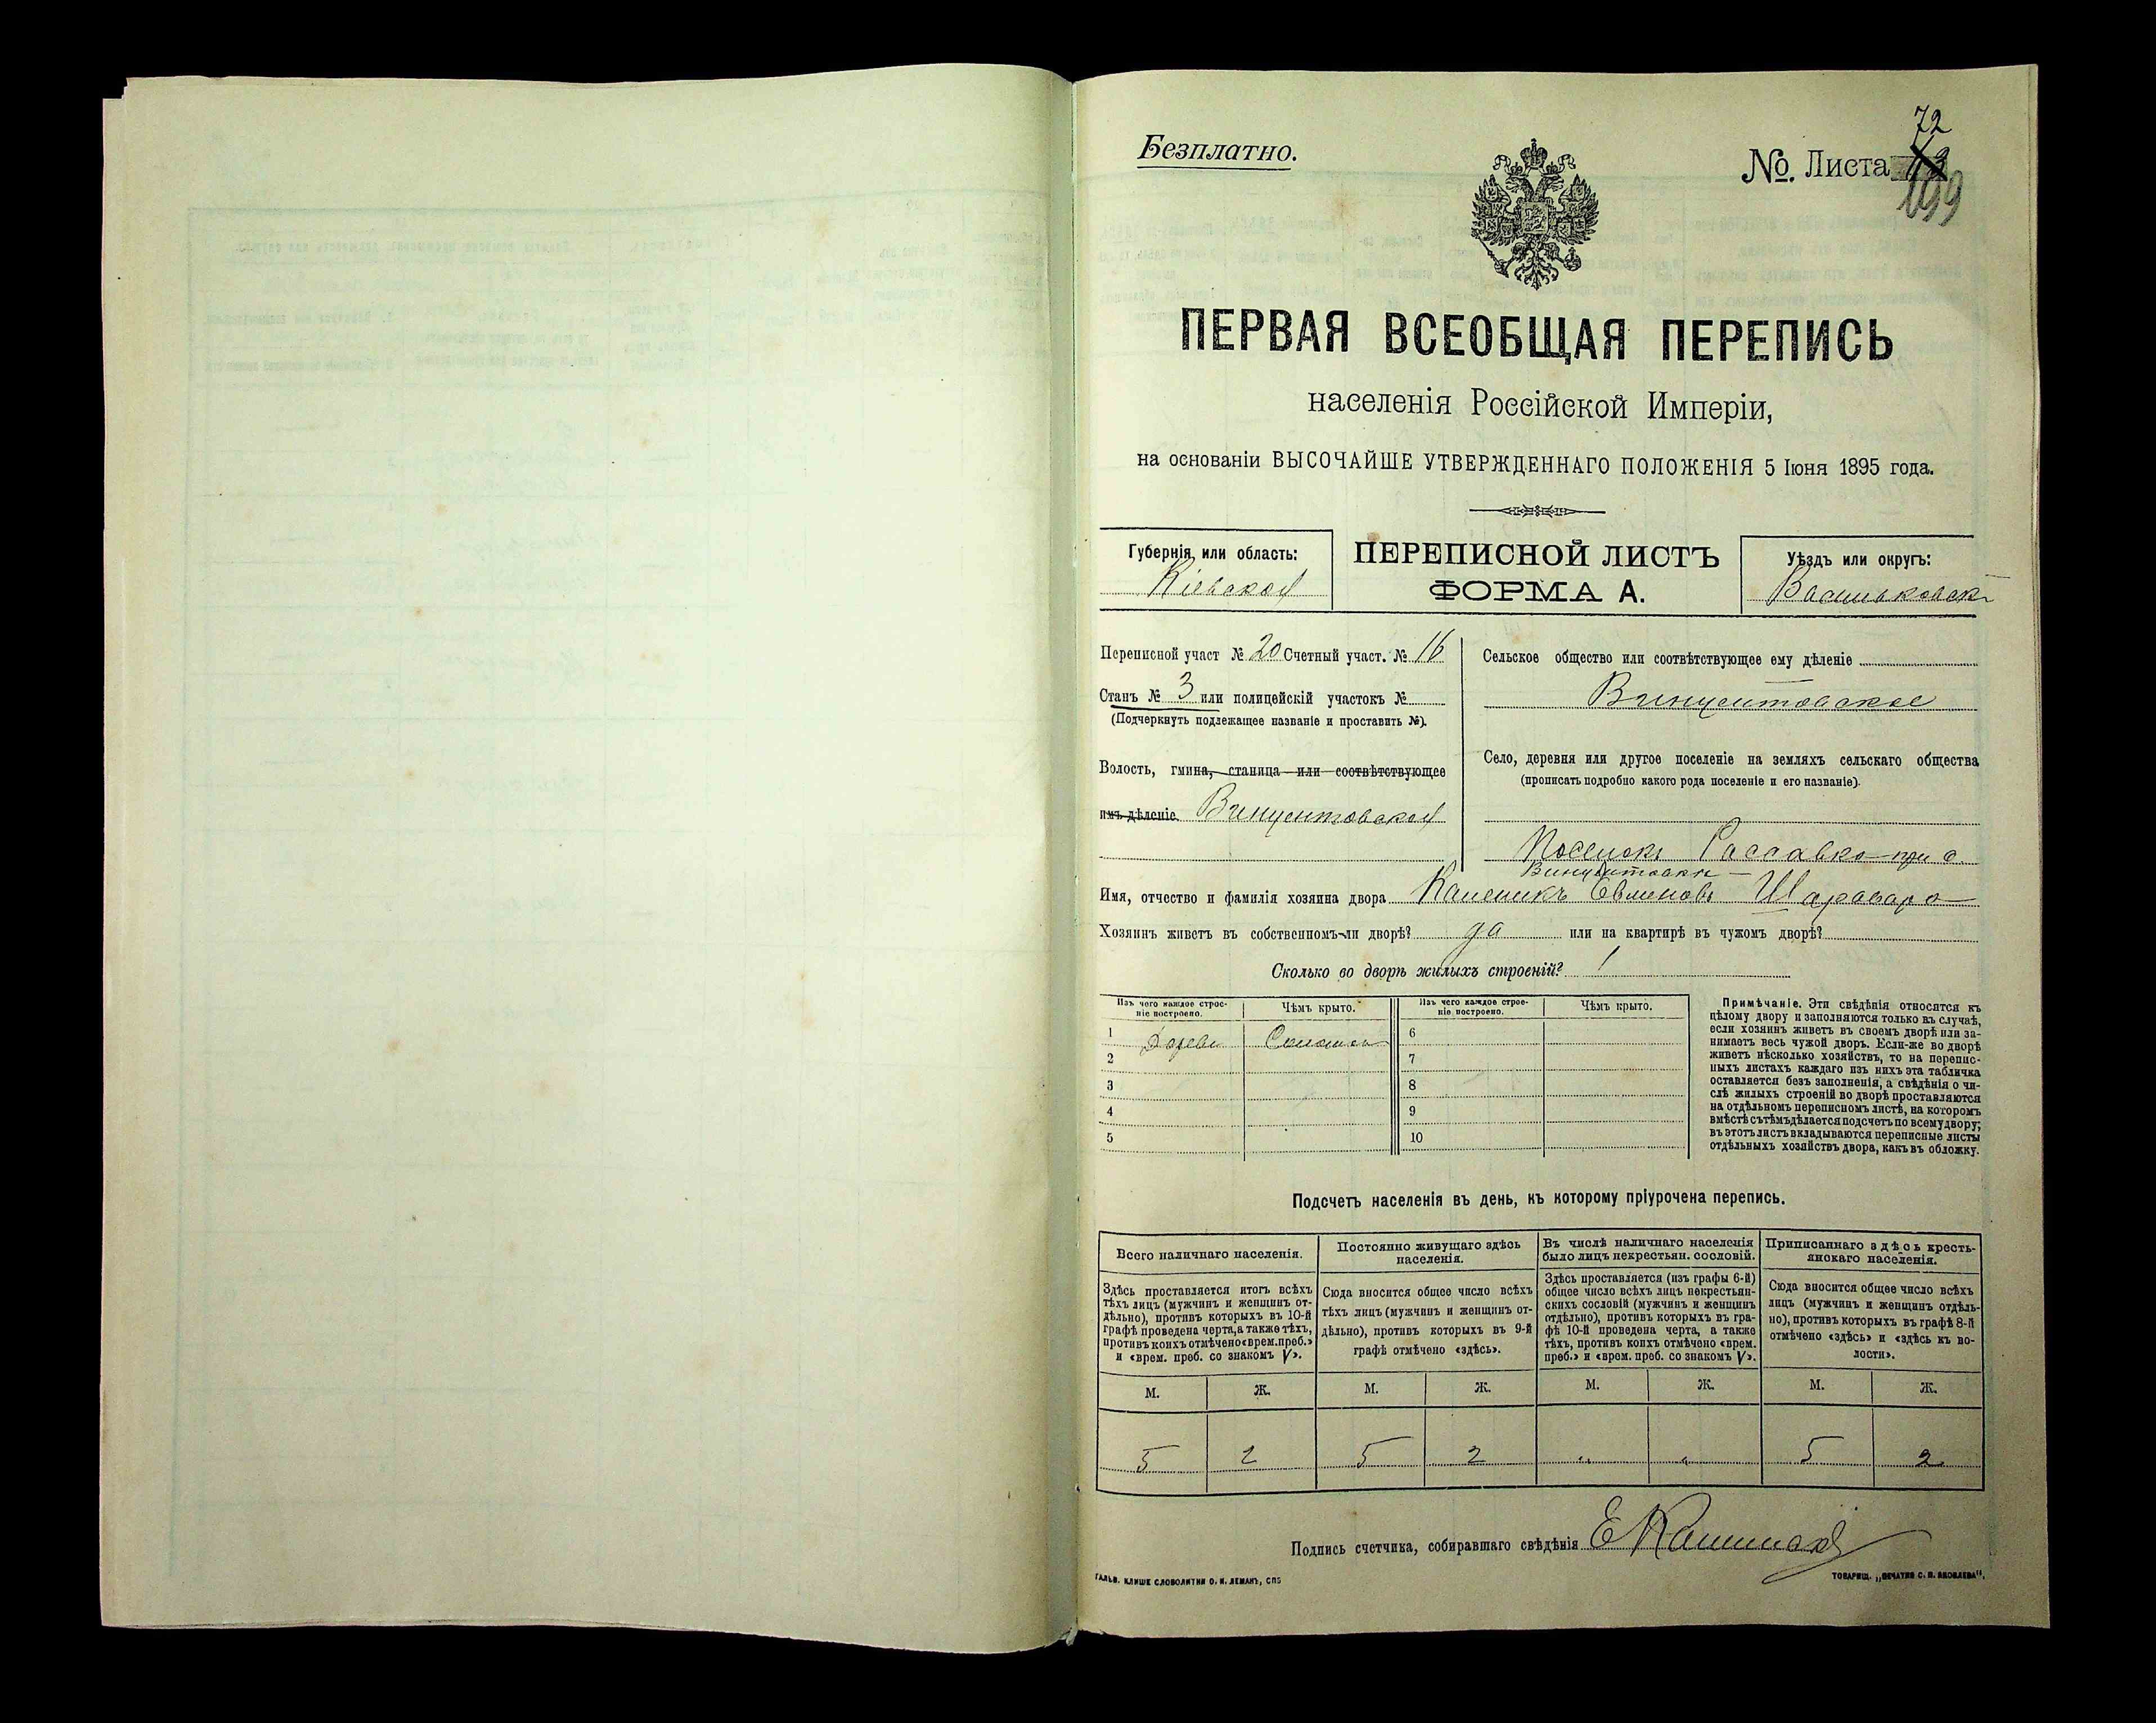 Безплатно.
72
№. Листа 43
199
ПЕРВАЯ ВСЕОБЩАЯ ПЕРЕПИСЬ
населенія Россійской Имперіи,
на основаніи ВЫСОЧАЙШЕ УТВЕРЖДЕННАГО ПОЛОЖЕНІЯ 5 Іюня 1895 года.
Губернія, или область:
Кіевская
ПЕРЕПИСНОЙ ЛИСТЪ
ФОРМА А.
Уѣздъ или округъ:
Васильковскі
Переписной участ № 20 Счетный участ. № 16
Станъ № 3 или полицейскій участокъ №
(Подчеркнуть подлежащее названіе и проставить №).
Волость, гмина, станица или соотвѣтствующее
имъ дѣленіе. Винцентовская
Сельское общество или соотвѣтствующее ему дѣленіе
Винцентовское
Село, деревня или другое поселеніе на земляхъ сельскаго общества
(прописать подробно какого рода поселеніе и его названіе).
Поселокъ Рассавка при д.
Винцентовкѣ
Имя, отчество и фамилія хозяина двора Каленикъ Евменовъ Шаравара
Хозяинъ живетъ въ собственномъ-ли дворѣ? да или на квартирѣ въ чужомъ дворѣ?
Сколько во дворѣ жилыхъ строеній? 1
Изъ чего каждое строе-
ніе построено.
Чѣмъ крыто.
Изъ чего каждое строе-
ніе построено.
Чѣмъ крыто.
1 Дерева Соломы 6
2 7
3 8
4 9
5 10
Примѣчаніе. Эти свѣдѣнія относятся къ
цѣлому двору и заполняются только въ случаѣ,
если хозяинъ живетъ въ своемъ дворѣ или за-
нимаетъ весь чужой дворъ. Если-же во дворѣ
живетъ нѣсколько хозяйствъ, то на перепис-
ныхъ листахъ каждаго изъ нихъ эта табличка
оставляется безъ заполненія, а свѣдѣнія о чи-
слѣ жилыхъ строеній во дворѣ проставляются
на отдѣльномъ переписномъ листѣ, на которомъ
вмѣстѣ съ тѣмъ дѣлается подсчетъ по всему двору;
въ этотъ листъ вкладываются переписные листы
отдѣльныхъ хозяйствъ двора, какъ въ обложку.
Подсчетъ населенія въ день, къ которому пріурочена перепись.
Всего наличнаго населенія.
Здѣсь проставляется итогъ всѣхъ
тѣхъ лицъ (мужчинъ и женщинъ от-
дѣльно), противъ которыхъ въ 10-й
графѣ проведена черта, а также тѣхъ,
противъ коихъ отмѣчено «врем. преб.»
и «врем. преб. со знакомъ V».
Постоянно живущаго здѣсь
населенія.
Сюда вносится общее число всѣхъ
тѣхъ лицъ (мужчинъ и женщинъ от-
дѣльно), противъ которыхъ въ 9-й
графѣ отмѣчено «здѣсь».
Въ числѣ наличнаго населенія
было лицъ некрестьян. сословій.
Здѣсь проставляется (изъ графы 6-й)
общее число всѣхъ лицъ некрестьян-
скихъ сословій (мужчинъ и женщинъ
отдѣльно), противъ которыхъ въ гра-
фѣ 10-й проведена черта, а также
тѣхъ, противъ коихъ отмѣчено «врем.
преб.» и «врем. преб. со знакомъ V».
Приписаннаго здѣсь кресть-
янскаго населенія.
Сюда вносится общее число всѣхъ
лицъ (мужчинъ и женщинъ отдѣль-
но), противъ которыхъ въ графѣ 8-й
отмѣчено «здѣсь» и «здѣсь къ во-
лости».
М. Ж. М. Ж. М. Ж. М. Ж.
5 2 5 2 " " 5 2
Подпись счетчика, собиравшаго свѣдѣнія
ГАЛЬВ. КЛИШЕ СЛОВОЛИТНИ О. И. ЛЕМАНЪ, СПБ
ТОВАРИЩ. „ПЕЧАТНЯ С. П. ЯКОВЛЕВА".